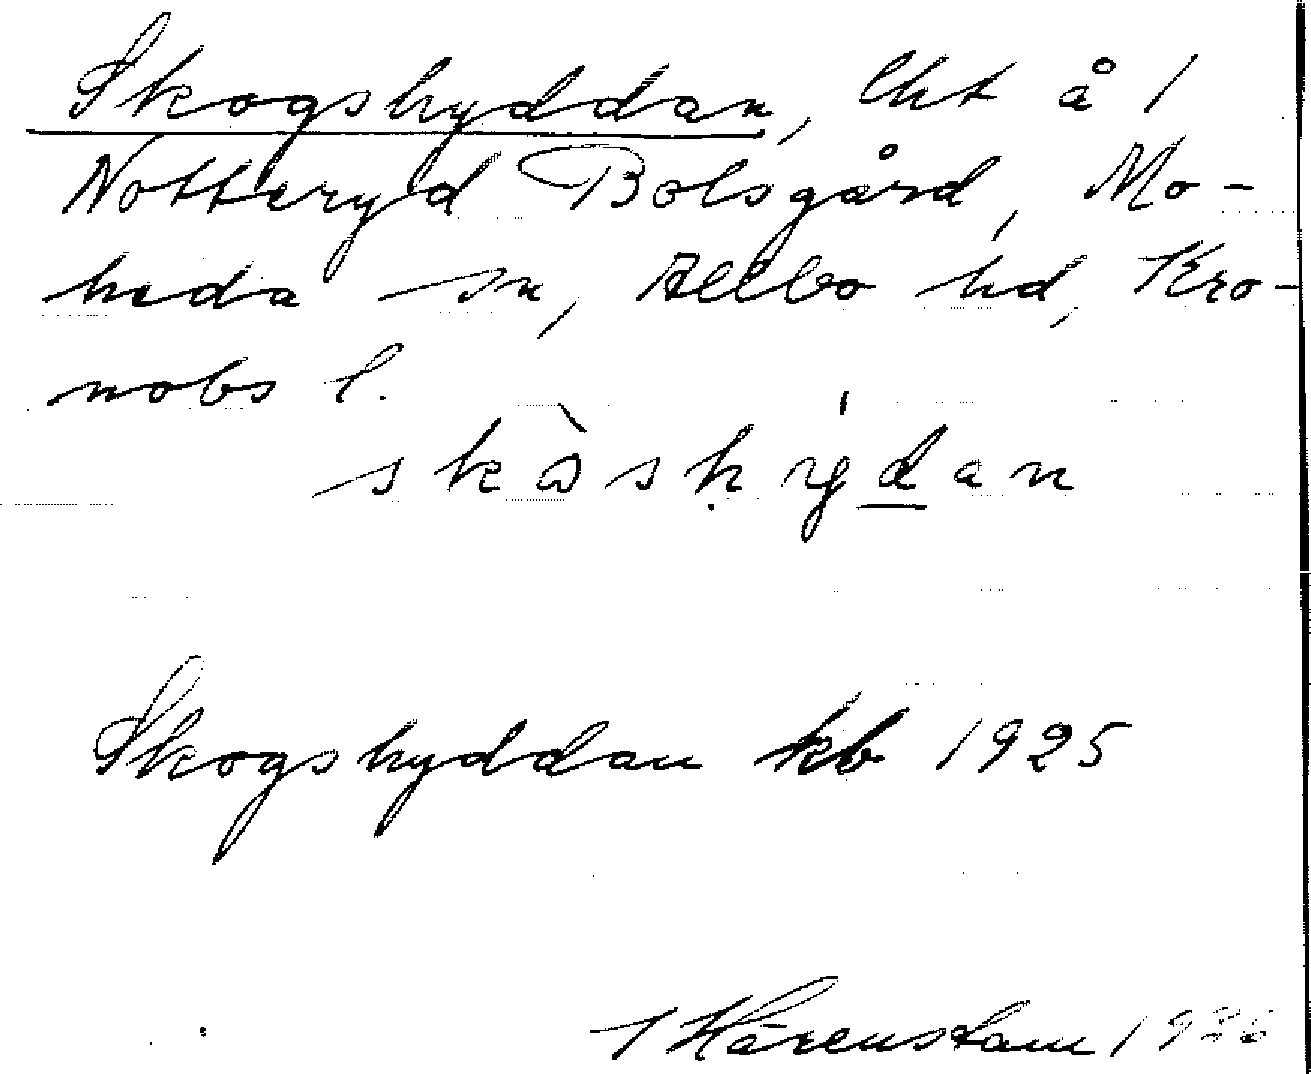 Skogshyddan, lht å 1
Notteryd Bolsgård, Mo-
heda sn, Allbo hd, Kro-
nobs l.
skòshy̍dan
Skogshyddan kb 1925
Härenstam 1936